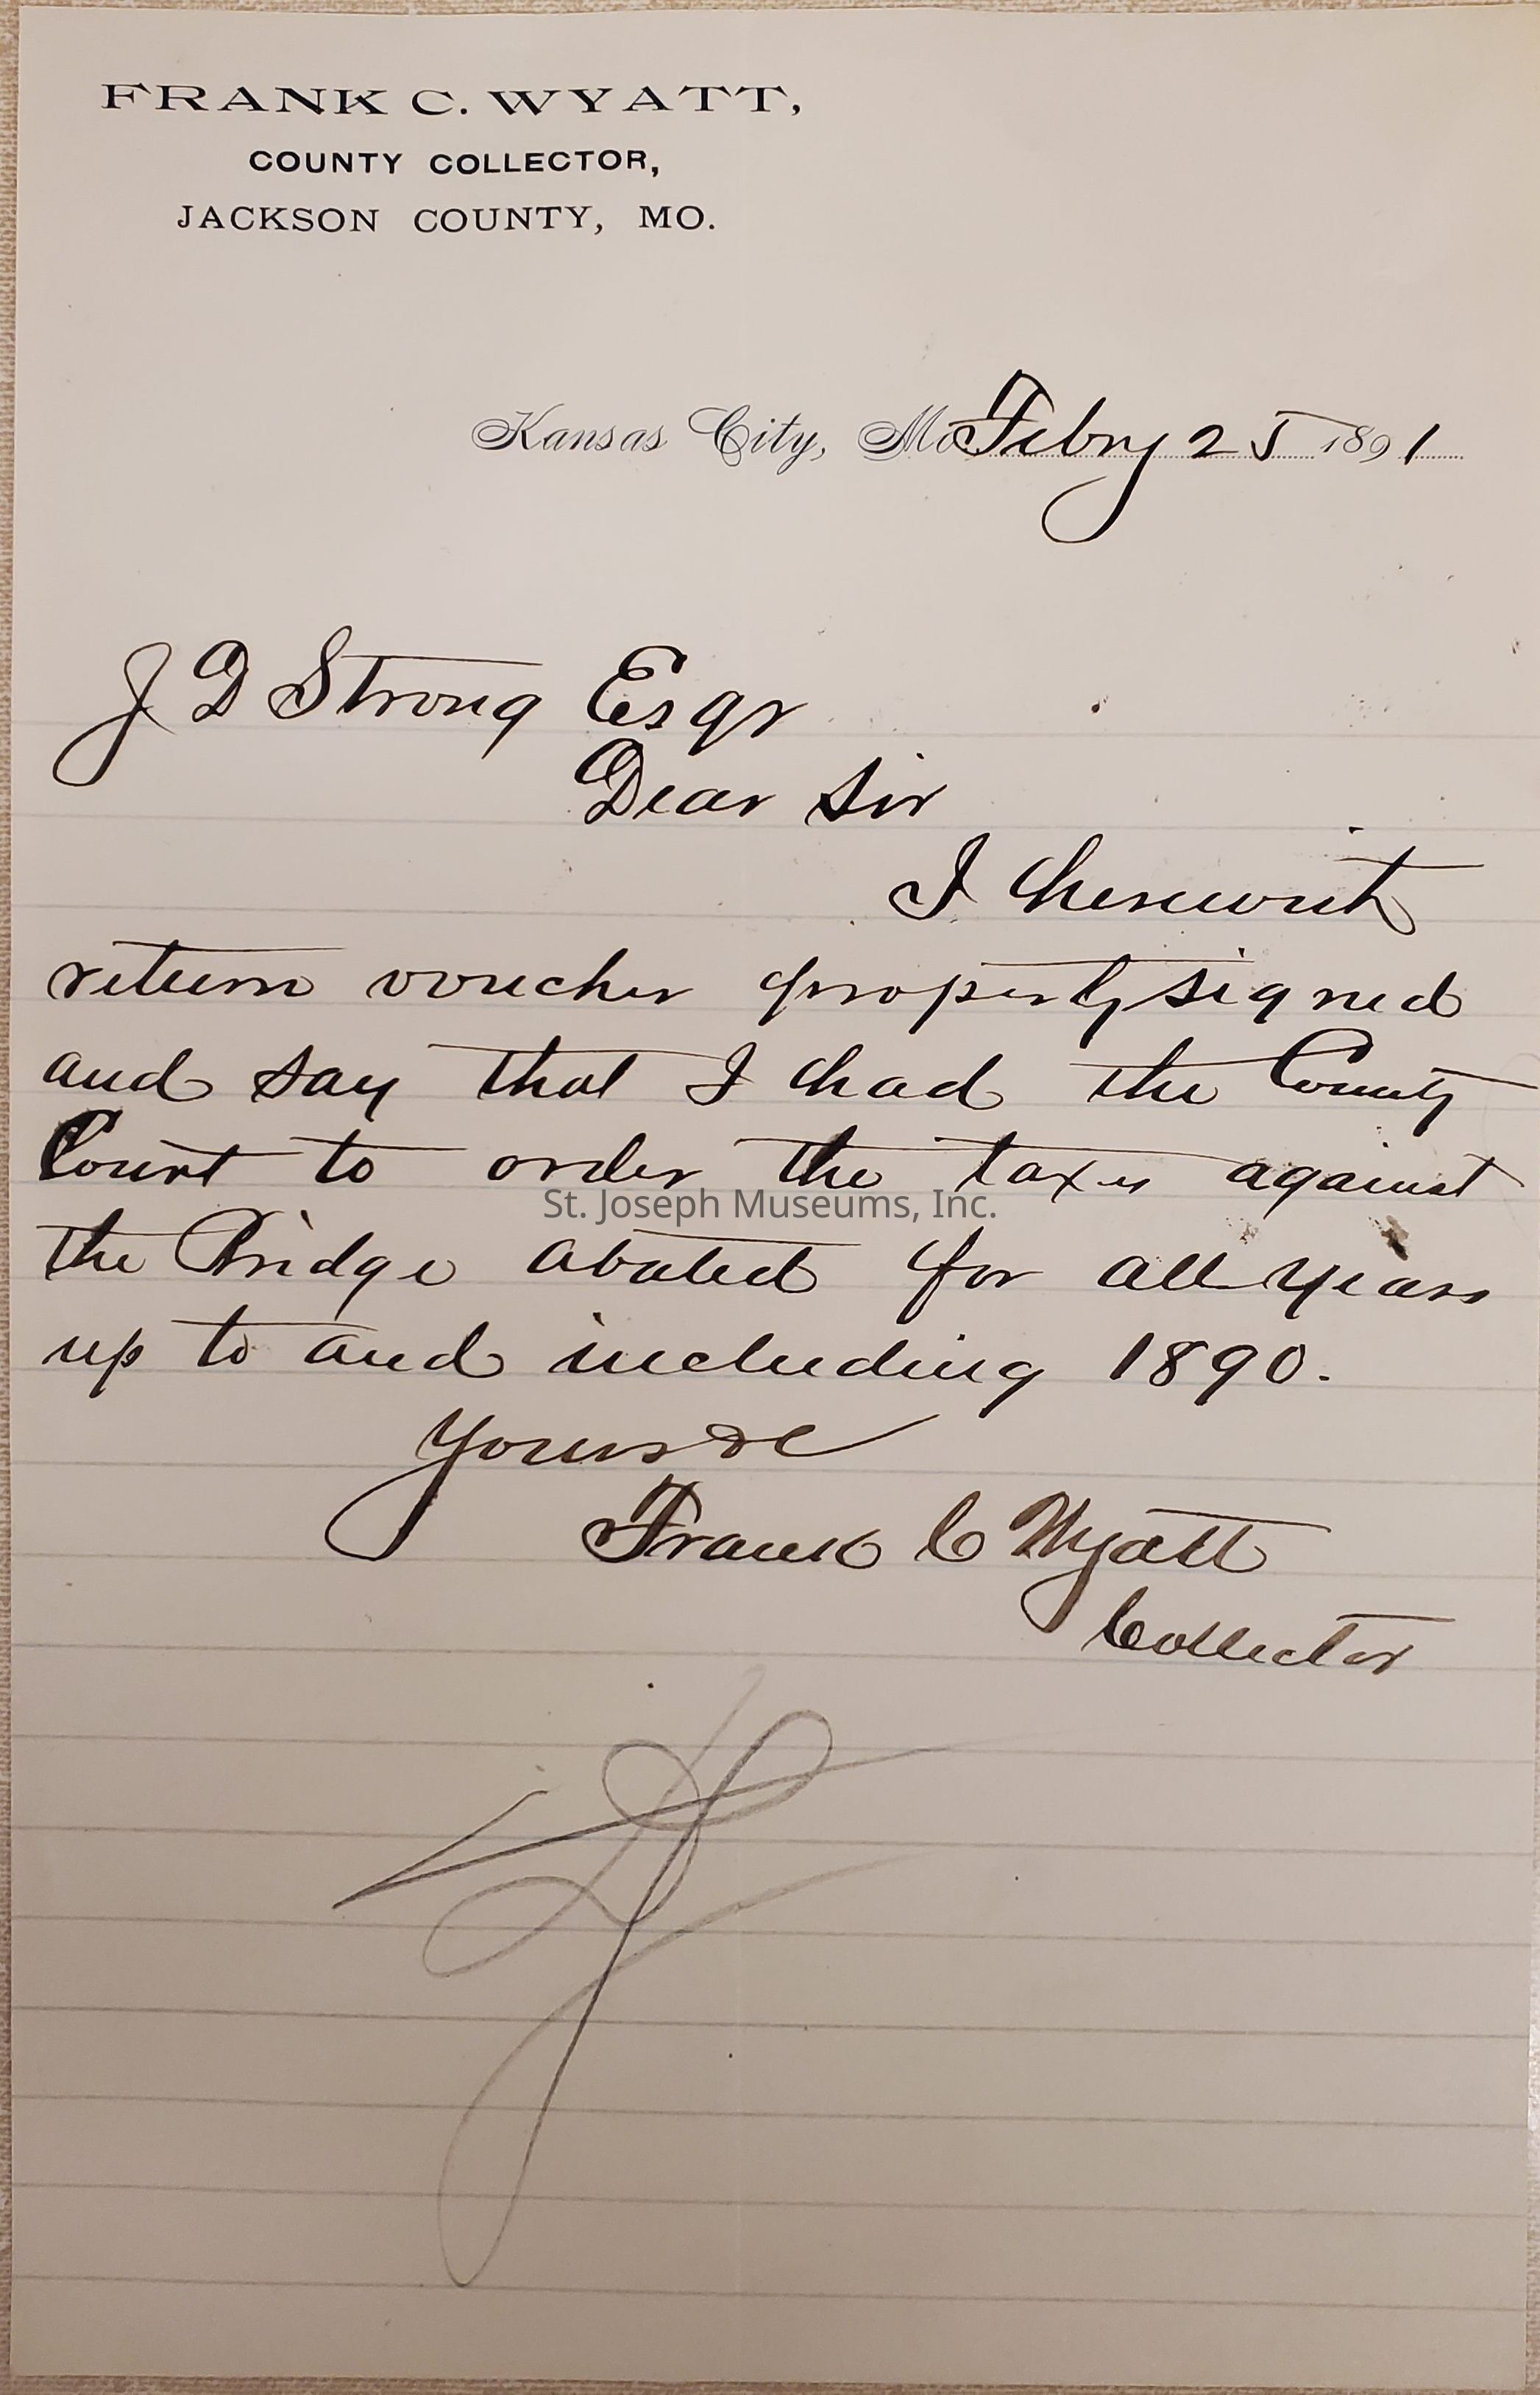 FRANK C. WYATT,
COUNTY COLLECTOR,
JACKSON COUNTY, MO.
Kansas City, Mo Febry 25 1891
J D Strong Esqr
Dear Sir
I herewith
return voucher properly signed
and say that I had the County
Court to order the taxes against
St. Joseph Museums, Inc.
the Bridge abated for all years
up to and including 1890.
Yours &c
Frank C Wyatt
Collector